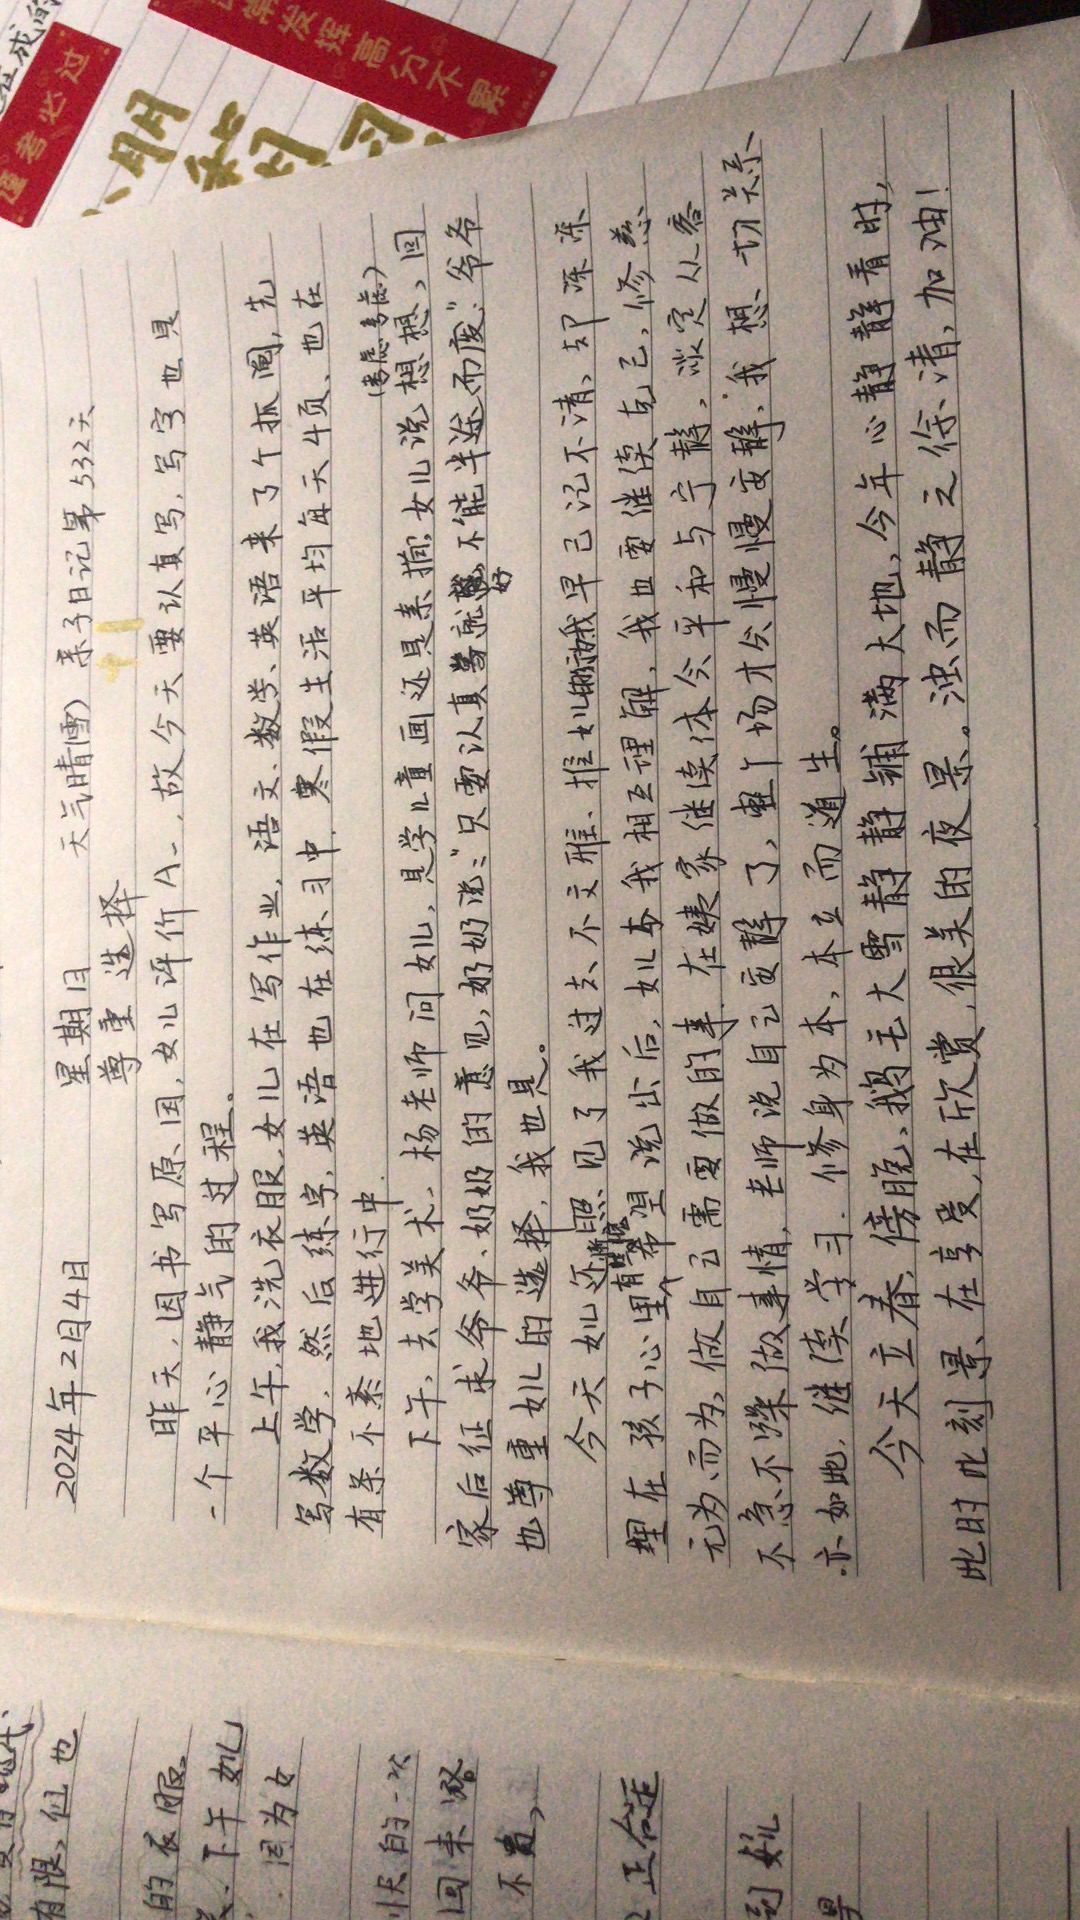 2024年2月4日 星期日 天气晴(雪) 亲子日记第532天
尊重选择
昨天,因书写原因,女儿评价A-,故今天要认真写,写字也是
一个平心静气的过程。
上午,我洗衣服,女儿在写作业,语文、数学、英语来了个抓阄,先
写数学,然后练字,英语也在练习中,寒假生活平均每天4页,也在
有条不紊地进行中.
下午,去学美术,杨老师问女儿,是学儿童画还是素描,女儿说想想,回
(考虑考虑)
家后征求爷爷、奶奶的意见,奶奶说:"只要认真学就好,不能半途而废."爷爷
也尊重女儿的选择,我也是。
今天女儿还照见了我过去不文雅、推女儿的我早已记不清,却深深
埋在孩子心里,有希望说出后,女儿与我相互理解,我也要继续克己,修慈
无为而为,做自己需要做的事.在姨家继续体会平和与宁静,淡定从容
不急不躁做事情,老师说自己安静了,整个场才会慢慢安静,我想一切关系
亦如此,继续学习.修身为本,本立而道生。
今天立春,傍晚,鹅毛大雪静静铺满大地,今年心静静看时,
此时此刻景、在享受,在欣赏,很美的夜景。浊而静之徐清,加油!
逢考必过
常发挥高分不累
有限,但也
的衣服
下午女儿
因为女
状的一次
回来路
不贵,
正合适
到女儿